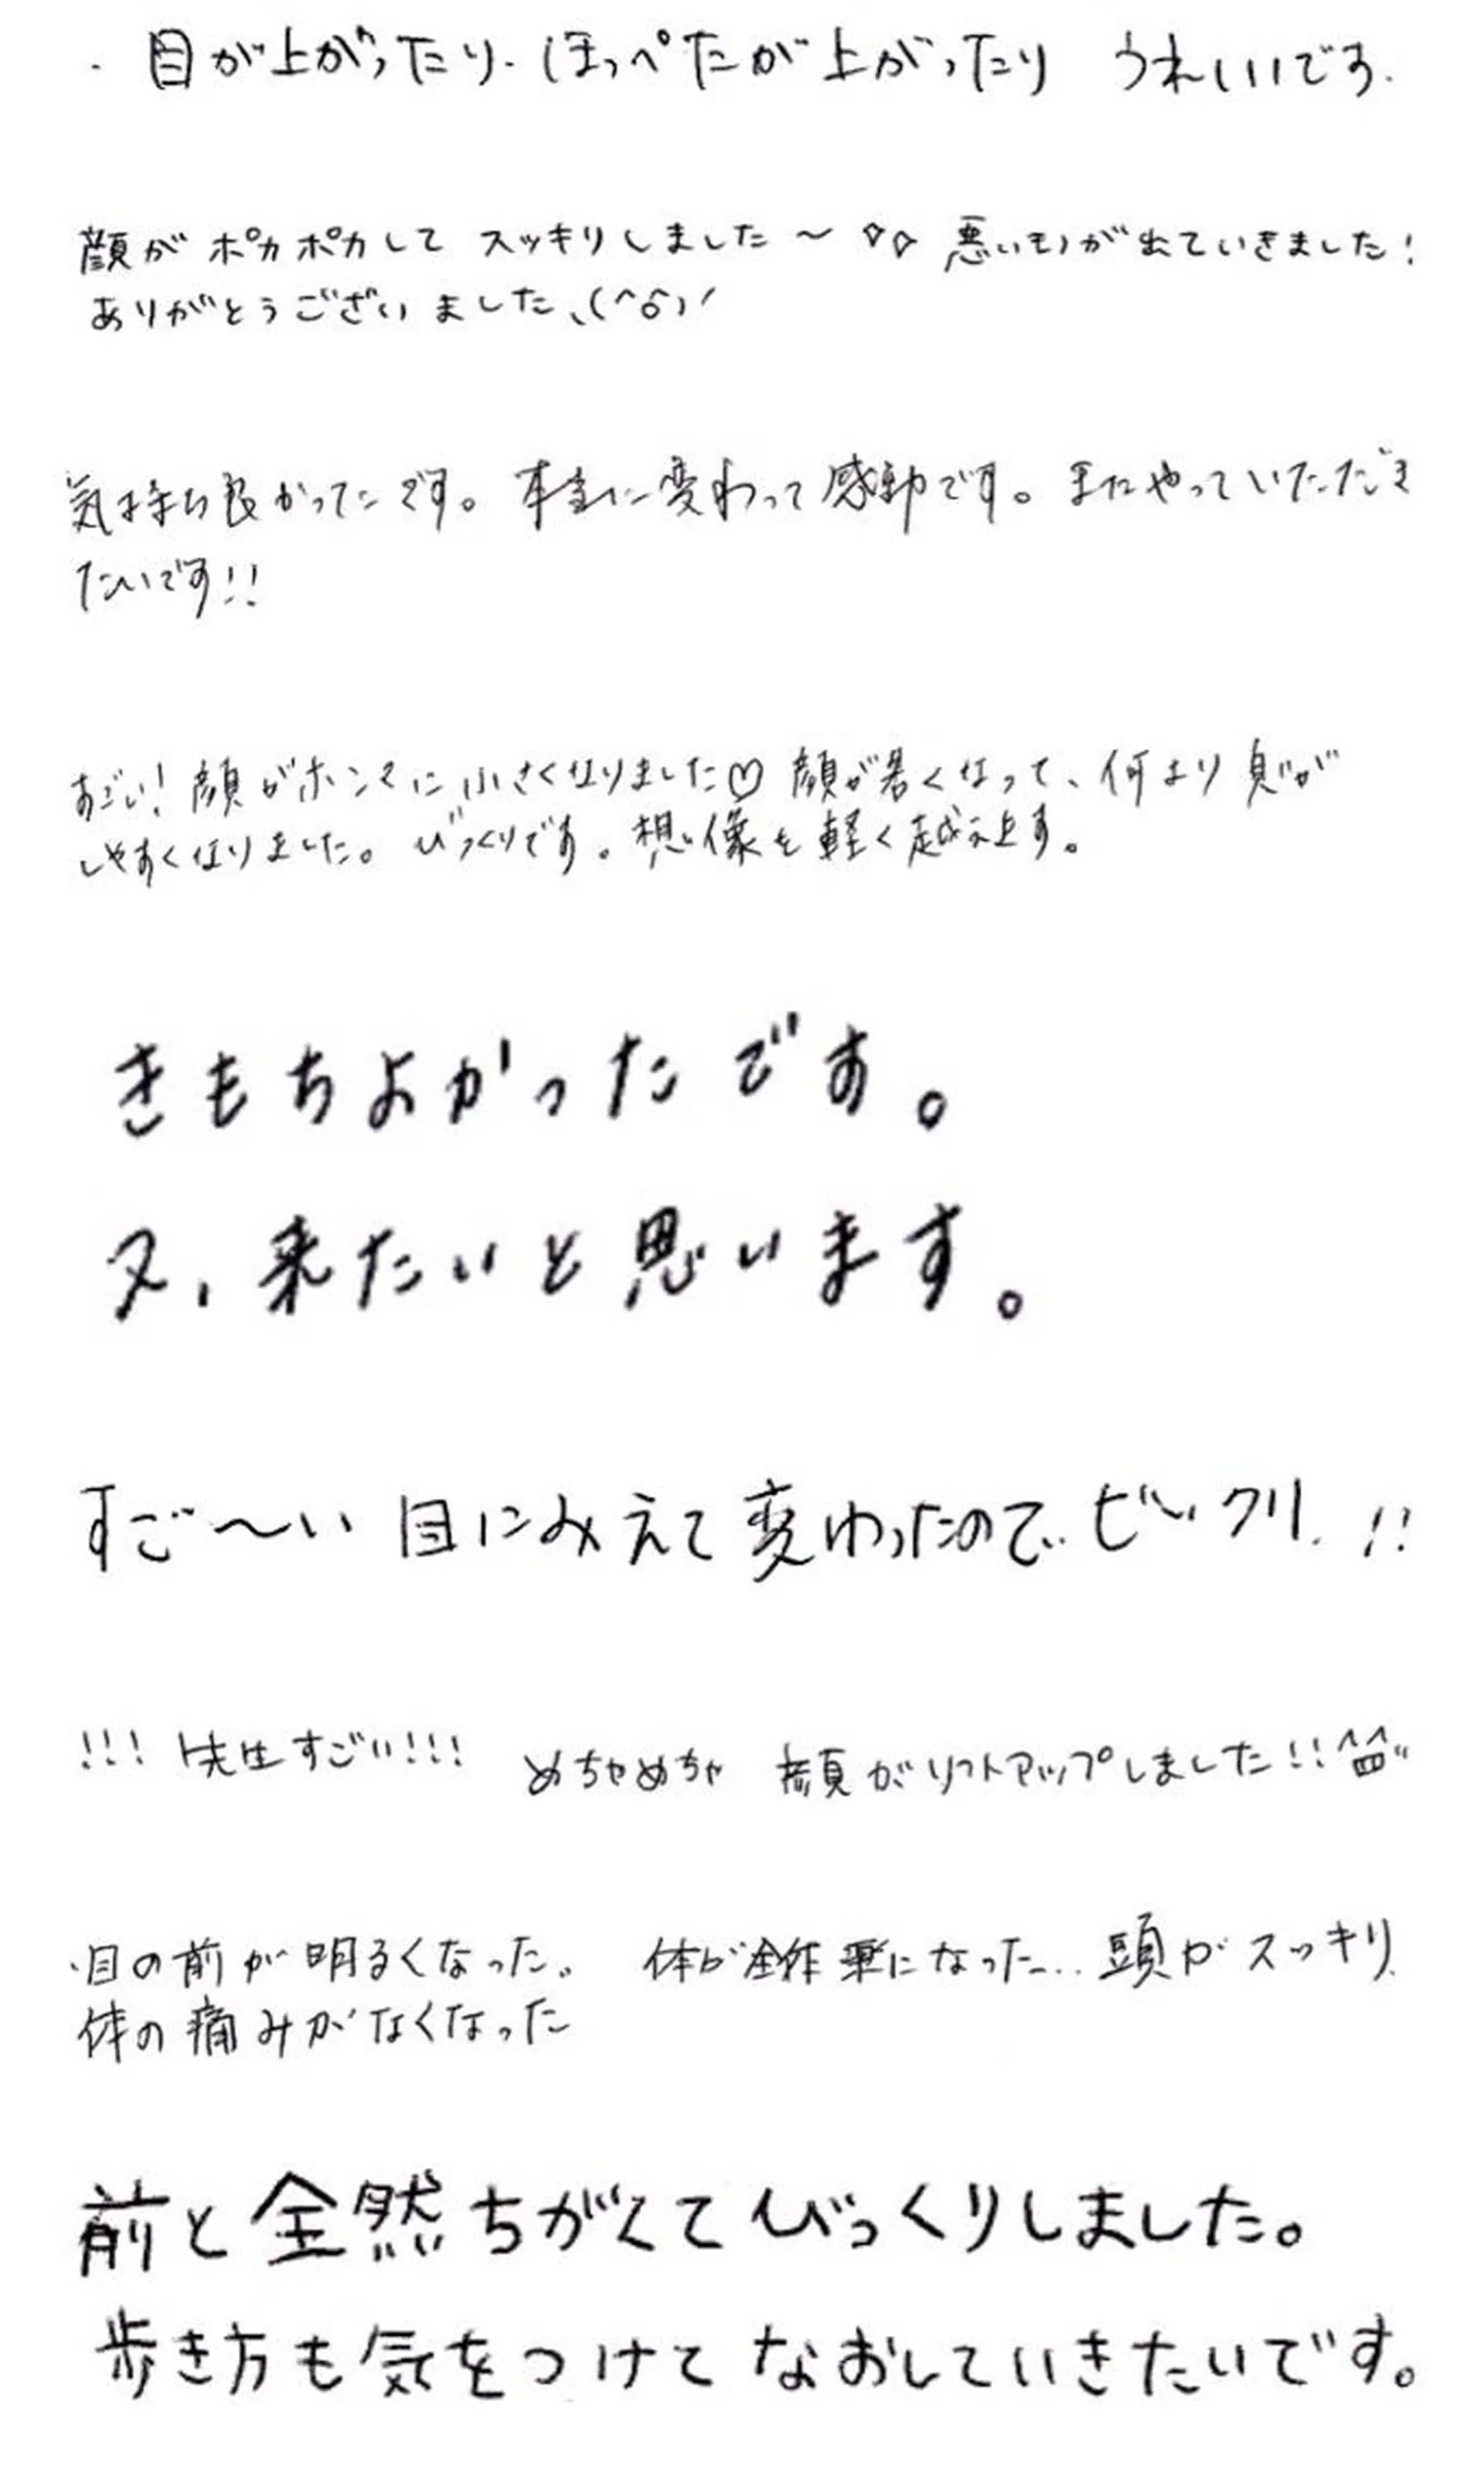 ・目が上がったり、ほっぺたが上がったり うれしいです。
顔がポカポカして スッキリしました〜 悪いモノが出ていきました！
ありがとうございました＼(^o^)／
気持ち良かったです。本当に変わって感動です。またやっていただき
たいです!!
すごい！顔がホンマに小さくなりました♡ 顔が暑くなって、何より息が
しやすくなりました。びっくりです。想像を軽く越えます。
きもちよかったです。
又、来たいと思います。
すご〜い 目にみえて変わったので、ビックリ!!
!!! 先生すごい!!! めちゃめちゃ 顔がリフトアップしました!!
・目の前が明るくなった。 体が 楽になった… 頭がスッキリ
体の痛みがなくなった
前と全然ちがくてびっくりしました。
歩き方も気をつけてなおしていきたいです。